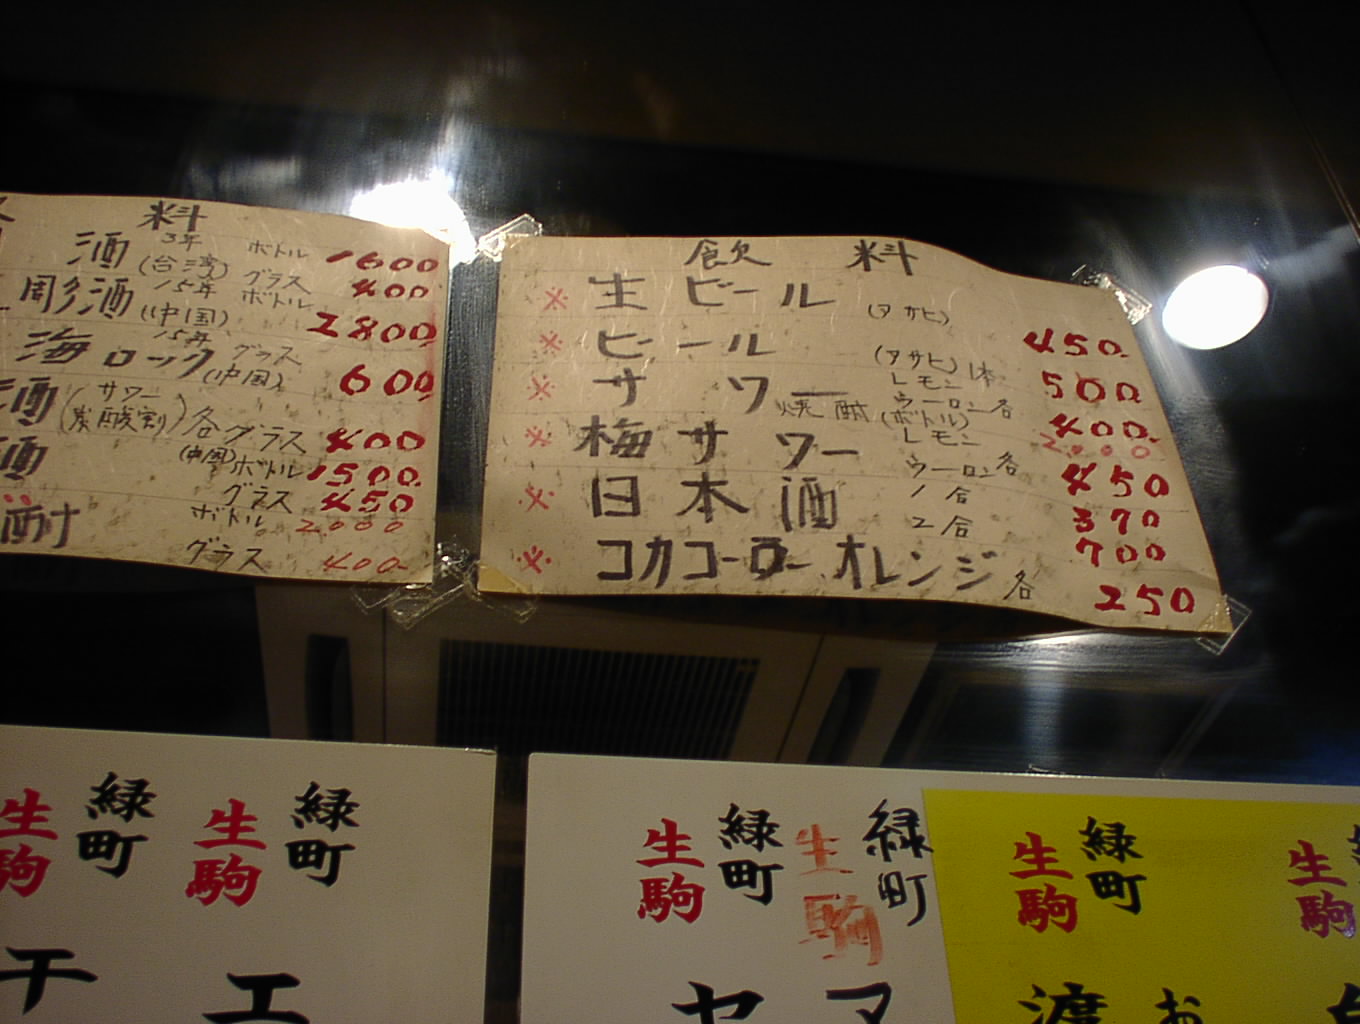 料
酒 3年 ボトル 1600
(台湾) グラス 400
彫酒 15年 ボトル
(中国) 2800
15年 グラス
海 ロック (中国) 600
酒 (サワー 炭酸割) 各 グラス 400
酒 (中国) ボトル 1500
グラス 450
酎 ボトル 2000
グラス 400
飲料
※ 生ビール (アサヒ) 450
※ ビール (アサヒ) 1本 500
※ サワー レモン ウーロン 各 400
焼酎 (ボトル) 2000
※ 梅サワー レモン ウーロン 各 450
※ 日本酒 1合 370
2合 700
※ コカコーラー オレンジ 各 250
緑町 生駒
緑町 生駒
緑町 生駒
緑町 生駒
緑町 生駒
生駒
エ
ヤ
マ
渡
お